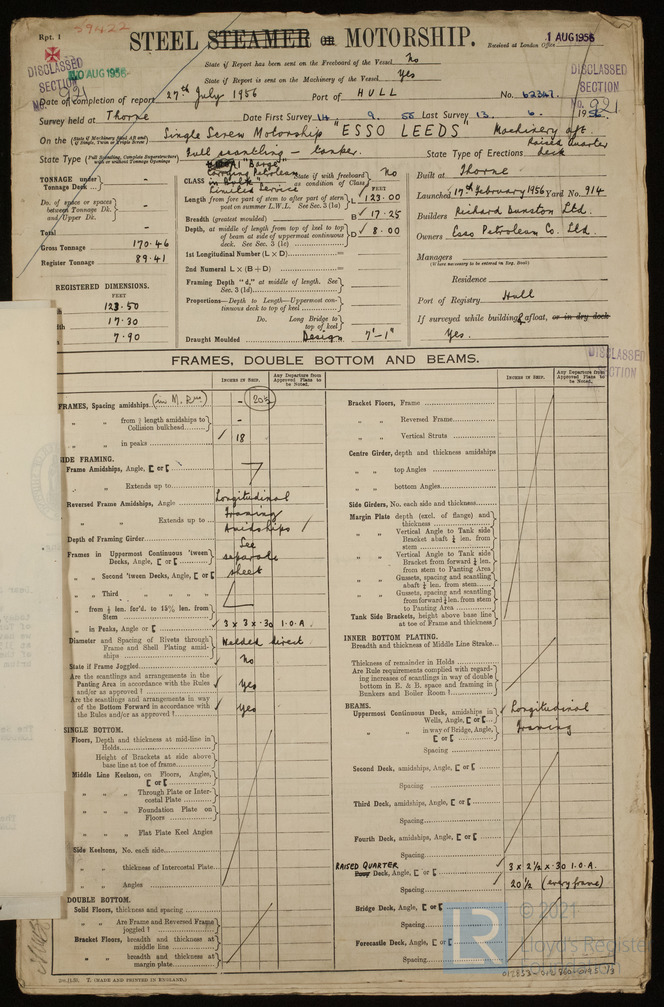 Rpt. 1
59422
STEEL STEAMER OR MOTORSHIP.
Received at London Office 1 AUG 1956
State if Report has been sent on the Freeboard of the Vessel No
State if Report is sent on the Machinery of the Vessel Yes
DISCLASSED
SECTION
No. 921
20 AUG 1956
DISCLASSED
SECTION
No. 921
Date of completion of report 27th July 1956 Port of HULL No. 62347
Survey held at Thorne Date First Survey 14. 9. 55 Last Survey 13. 6. 1956
On the (State if Machinery fitted Aft and if Single, Twin or Triple Screw) Single Screw Motorship "ESSO LEEDS" Machinery aft.
State Type (Full Scantling, Complete Superstructure with or without Tonnage Openings) Full scantling - tanker. State Type of Erections Raised Quarter deck
TONNAGE under Tonnage Deck -
Do. of space or spaces between Tonnage Dk. and Upper Dk. -
Total -
Gross Tonnage 170.46
Register Tonnage 89.41
REGISTERED DIMENSIONS.
FEET
123.50
17.30
7.90
CLASS "Barge" Carrying Petroleum in Bulk" Limited Service
State if with freeboard as condition of Class No
FEET
Length from fore part of stem to after part of stern post on summer L.W.L. See Sec. 3 (1a) L 123.00
Breadth (greatest moulded) B 17.25
Depth, at middle of length from top of keel to top of beam at side of uppermost continuous deck. See Sec. 3 (1c) D 8.00
1st Longitudinal Number (L × D) =
2nd Numeral L × (B + D) =
Framing Depth "d," at middle of length. See Sec. 3 (1d)
Proportions—Depth to Length—Uppermost continuous deck to top of keel
Do. Long Bridge to top of keel
Draught Moulded Design 7'-1"
Built at Thorne
Launched 17th February 1956 Yard No. 914
Builders Richard Dunston Ltd.
Owners Esso Petroleum Co. Ltd.
Managers
(Where necessary to be entered in Reg. Book)
Residence
Port of Registry Hull
If surveyed while building, afloat, or in dry dock
Yes.
DISCLASSED
SECTION
FRAMES, DOUBLE BOTTOM AND BEAMS.
INCHES IN SHIP.
Any Departure from Approved Plans to be Noted.
FRAMES, Spacing amidships (in M. Rm) - 20½
" " from ⅗ length amidships to Collision bulkhead -
" " in peaks 18
SIDE FRAMING.
Frame Amidships, Angle, [ or [
" " Extends up to
Reversed Frame Amidships, Angle
" " Extends up to
Longitudinal Framing Amidships
See separate sheet
Depth of Framing Girder
Frames in Uppermost Continuous 'tween Decks, Angle, [ or [
" " Second 'tween Decks, Angle, [ or [
" " Third " "
" " from ⅗ len. for'd. to 15% len. from Stem
" " in Peaks, Angle or [ 3 x 3 x .30 I.O.A.
Diameter and Spacing of Rivets through Frame and Shell Plating amidships Welded direct
State if Frame Joggled No
Are the scantlings and arrangements in the Panting Area in accordance with the Rules and/or as approved? Yes
Are the scantlings and arrangements in way of the Bottom Forward in accordance with the Rules and/or as approved? Yes
SINGLE BOTTOM.
Floors, Depth and thickness at mid-line in Holds
Height of Brackets at side above base line at toe of frame
Middle Line Keelson, on Floors, Angles, [ or [
" " Through Plate or Intercostal Plate
" " Foundation Plate on Floors
" " Flat Plate Keel Angles
Side Keelsons, No. each side
" " thickness of Intercostal Plate
" " Angles
DOUBLE BOTTOM.
Solid Floors, thickness and spacing
" " Are Frame and Reversed Frame joggled?
Bracket Floors, breadth and thickness at middle line
" " breadth and thickness at margin plate
2m.11.55. T. (MADE AND PRINTED IN ENGLAND.)
INCHES IN SHIP.
Any Departure from Approved Plans to be Noted.
Bracket Floors, Frame
" " Reversed Frame
" " Vertical Struts
Centre Girder, depth and thickness amidships
" " top Angles
" " bottom Angles
Side Girders, No. each side and thickness
Margin Plate depth (excl. of flange) and thickness
" " Vertical Angle to Tank side Bracket abaft ¼ len. from stem
" " Vertical Angle to Tank side Bracket from forward ¼ len. from stem to Panting Area
" " Gussets, spacing and scantling abaft ¼ len. from stem
" " Gussets, spacing and scantling from forward ¼ len. from stem to Panting Area
Tank Side Brackets, height above base line at toe of Frame and thickness
INNER BOTTOM PLATING.
Breadth and thickness of Middle Line Strake
Thickness of remainder in Holds
Are Rule requirements complied with regarding increases of scantlings in way of double bottom in E. & B. space and framing in Bunkers and Boiler Room?
BEAMS.
Uppermost Continuous Deck, amidships in Wells, Angle, [ or [ Longitudinal
" " in way of Bridge, Angle, [ or [ Framing
Spacing
Second Deck, amidships, Angle, [ or [
Spacing
Third Deck, amidships, Angle, [ or [
Spacing
Fourth Deck, amidships, Angle, [ or [
Spacing
RAISED QUARTER Poop Deck, Angle, [ or [ 3 x 2½ x .30 I.O.A.
Spacing 20½ (every frame)
Bridge Deck, Angle, [ or [
Spacing
Forecastle Deck, Angle, [ or [
Spacing
LR
© 2021
Lloyd's Register